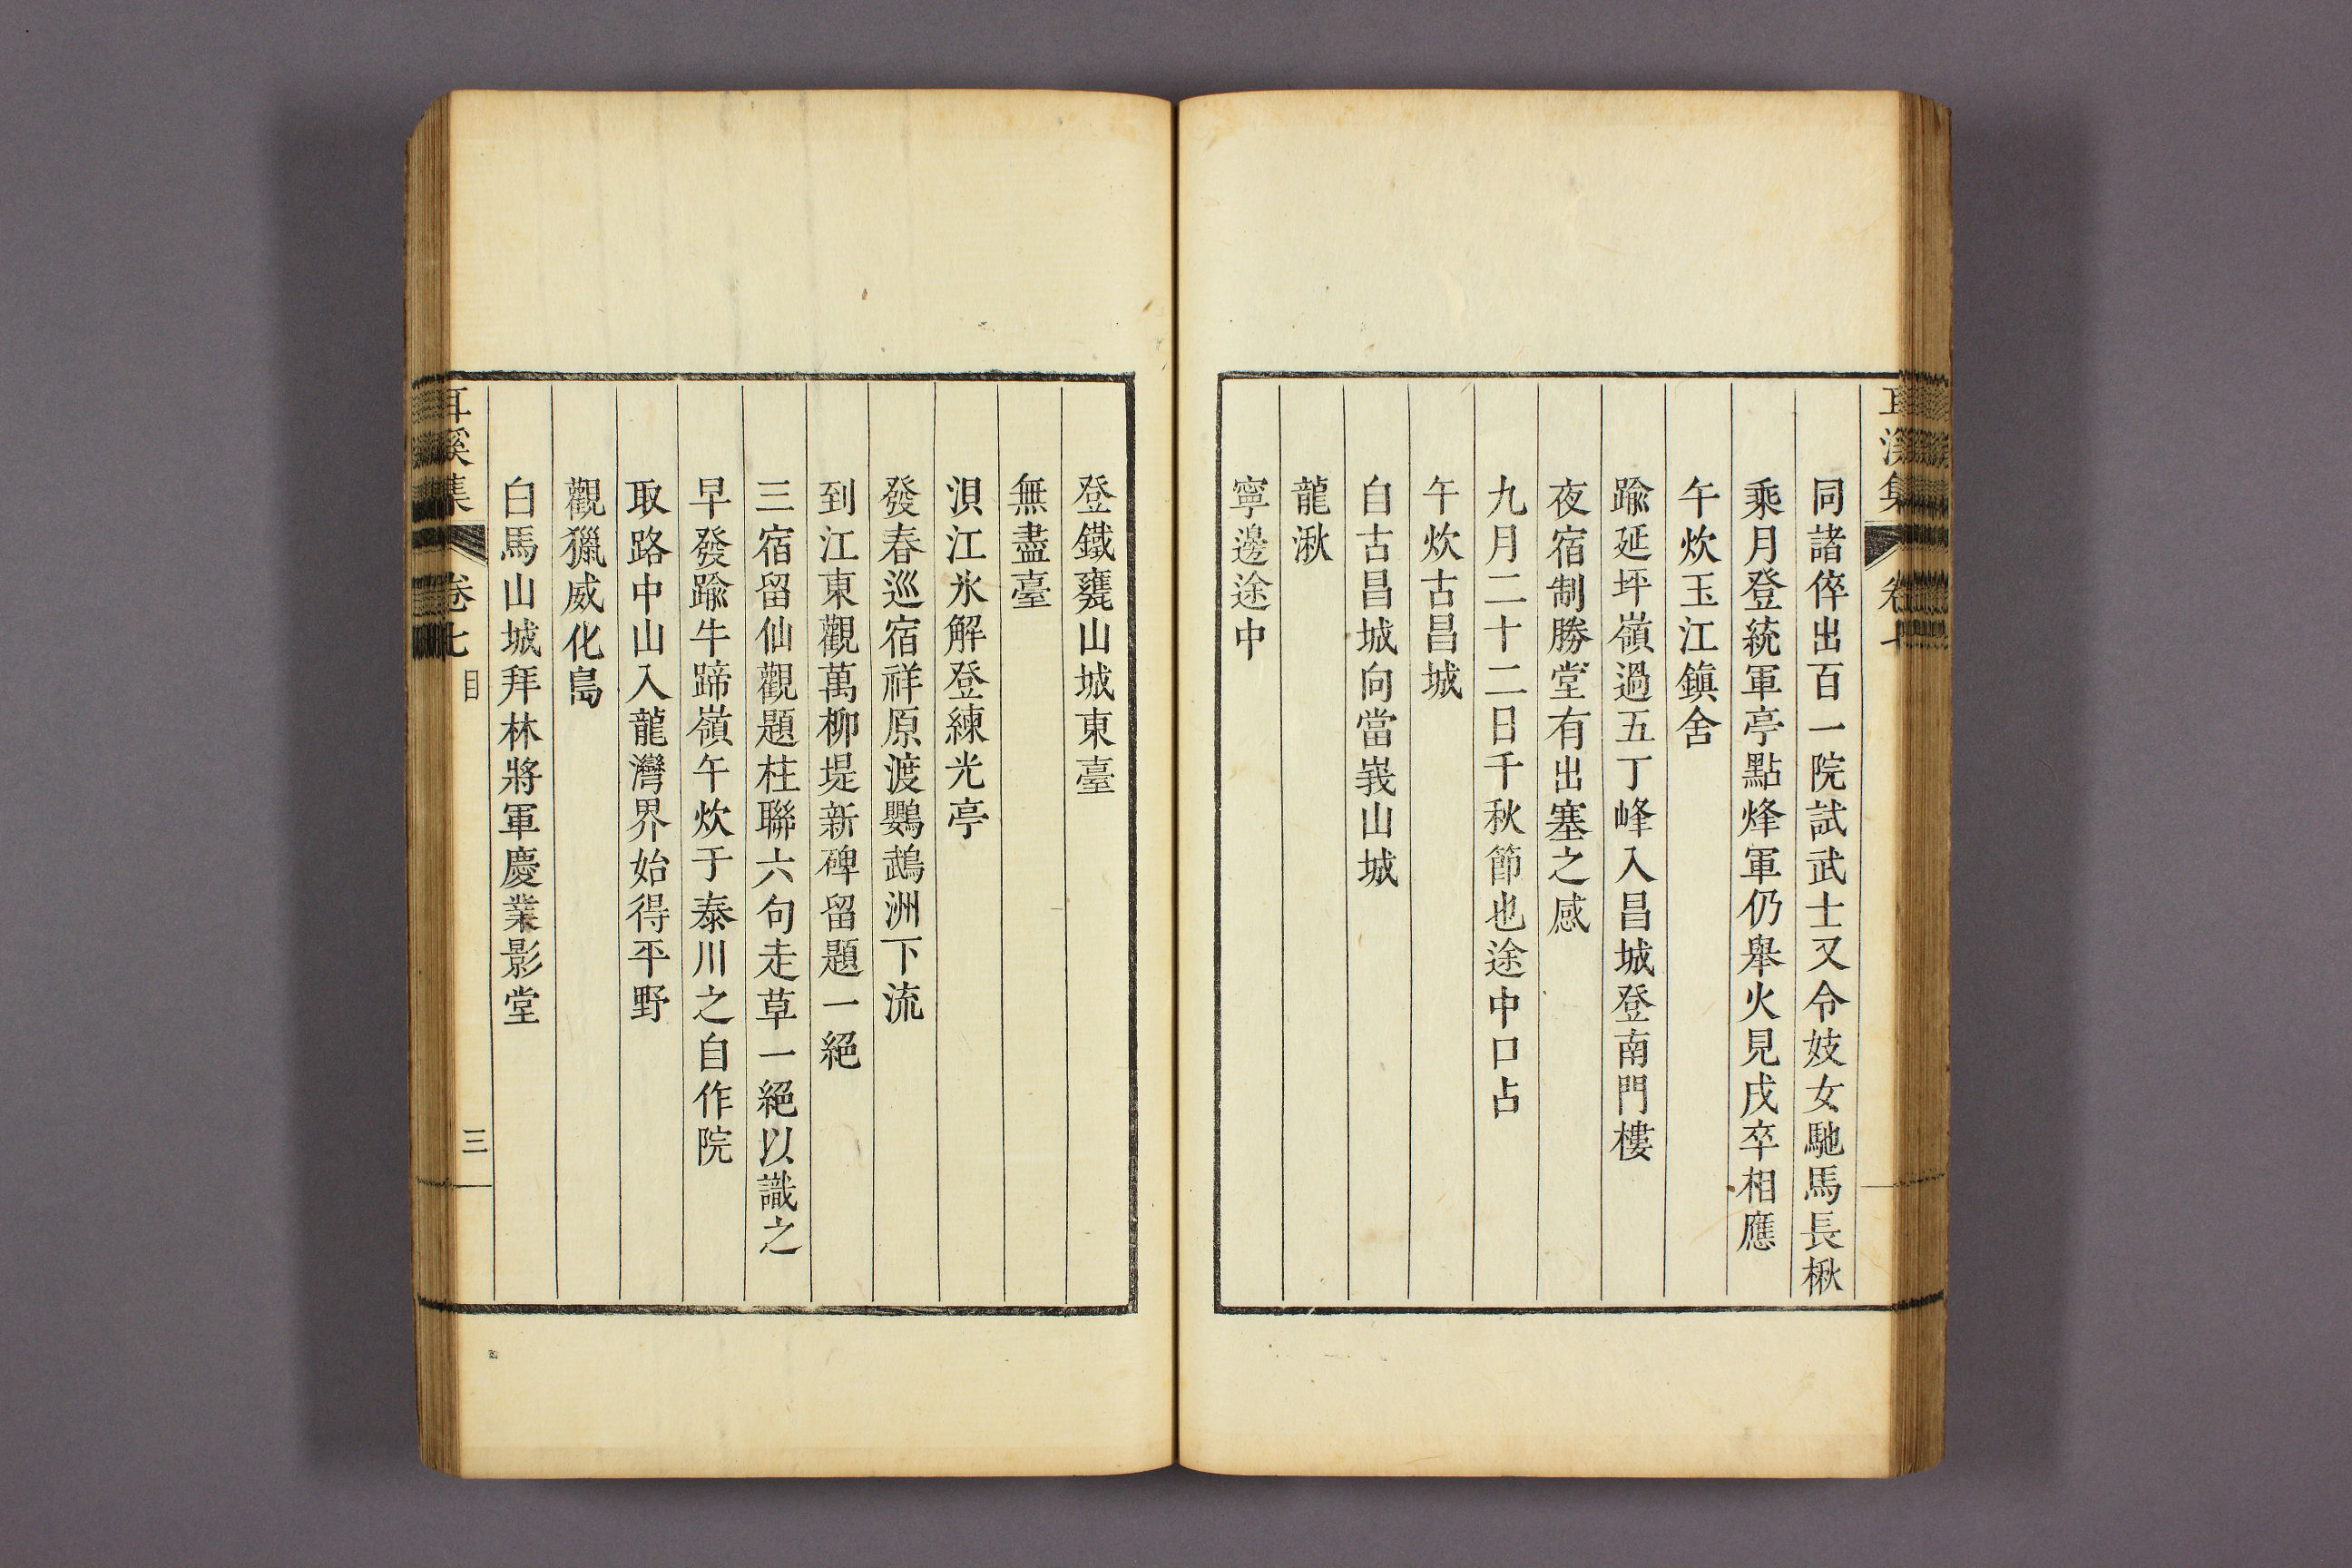 同諸倅出百一院試武士又令妓女馳馬長楸
乘月登統軍亭點烽軍仍舉火見戍卒相應
午炊玉江鎮舍
踰延坪嶺過五丁峰入昌城登南門樓
夜宿制勝堂有出塞之感
九月二十二日千秋節也途中口占
午炊古昌城
自古昌城向當峩山城
龍湫
寧邊途中
登鐵甕山城東臺
無盡臺
浿江氷解登練光亭
發春巡宿祥原渡鸚鵡洲下流
到江東觀萬柳堤新碑留題一絕
三宿留仙觀題柱聯六句走草一絕以識之
早發踰牛蹄嶺午炊于泰川之自作院
取路中山入龍灣界始得平野
觀獵威化島
白馬山城拜林將軍慶業影堂
耳溪集 卷七 目 三